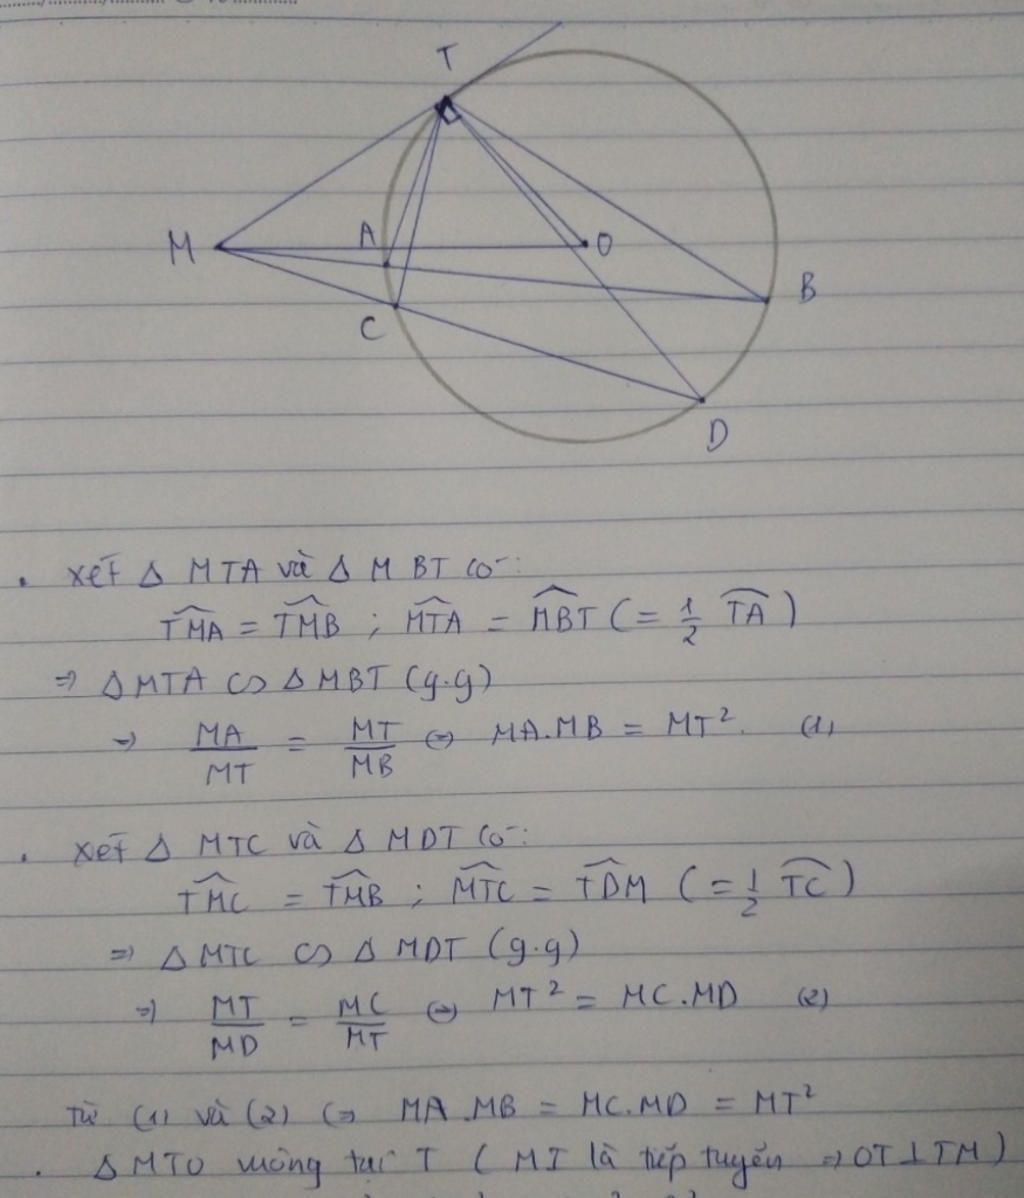 T
M
A
O
B
C
D
. xét Δ MTA và Δ MBT có:
TMA = TMB ; MTA = MBT (= 1/2 TA)
=> Δ MTA ∽ Δ MBT (g.g)
=> MA/MT = MT/MB <=> MA.MB = MT². (1)
. xét Δ MTC và Δ MDT có:
TMC = TMB ; MTC = TDM (= 1/2 TC)
=> Δ MTC ∽ Δ MDT (g.g)
=> MT/MD = MC/MT <=> MT² = MC.MD (2)
Từ (1) và (2) <=> MA.MB = MC.MD = MT²
. Δ MTO vuông tại T ( MT là tiếp tuyến => OT ⊥ TM )